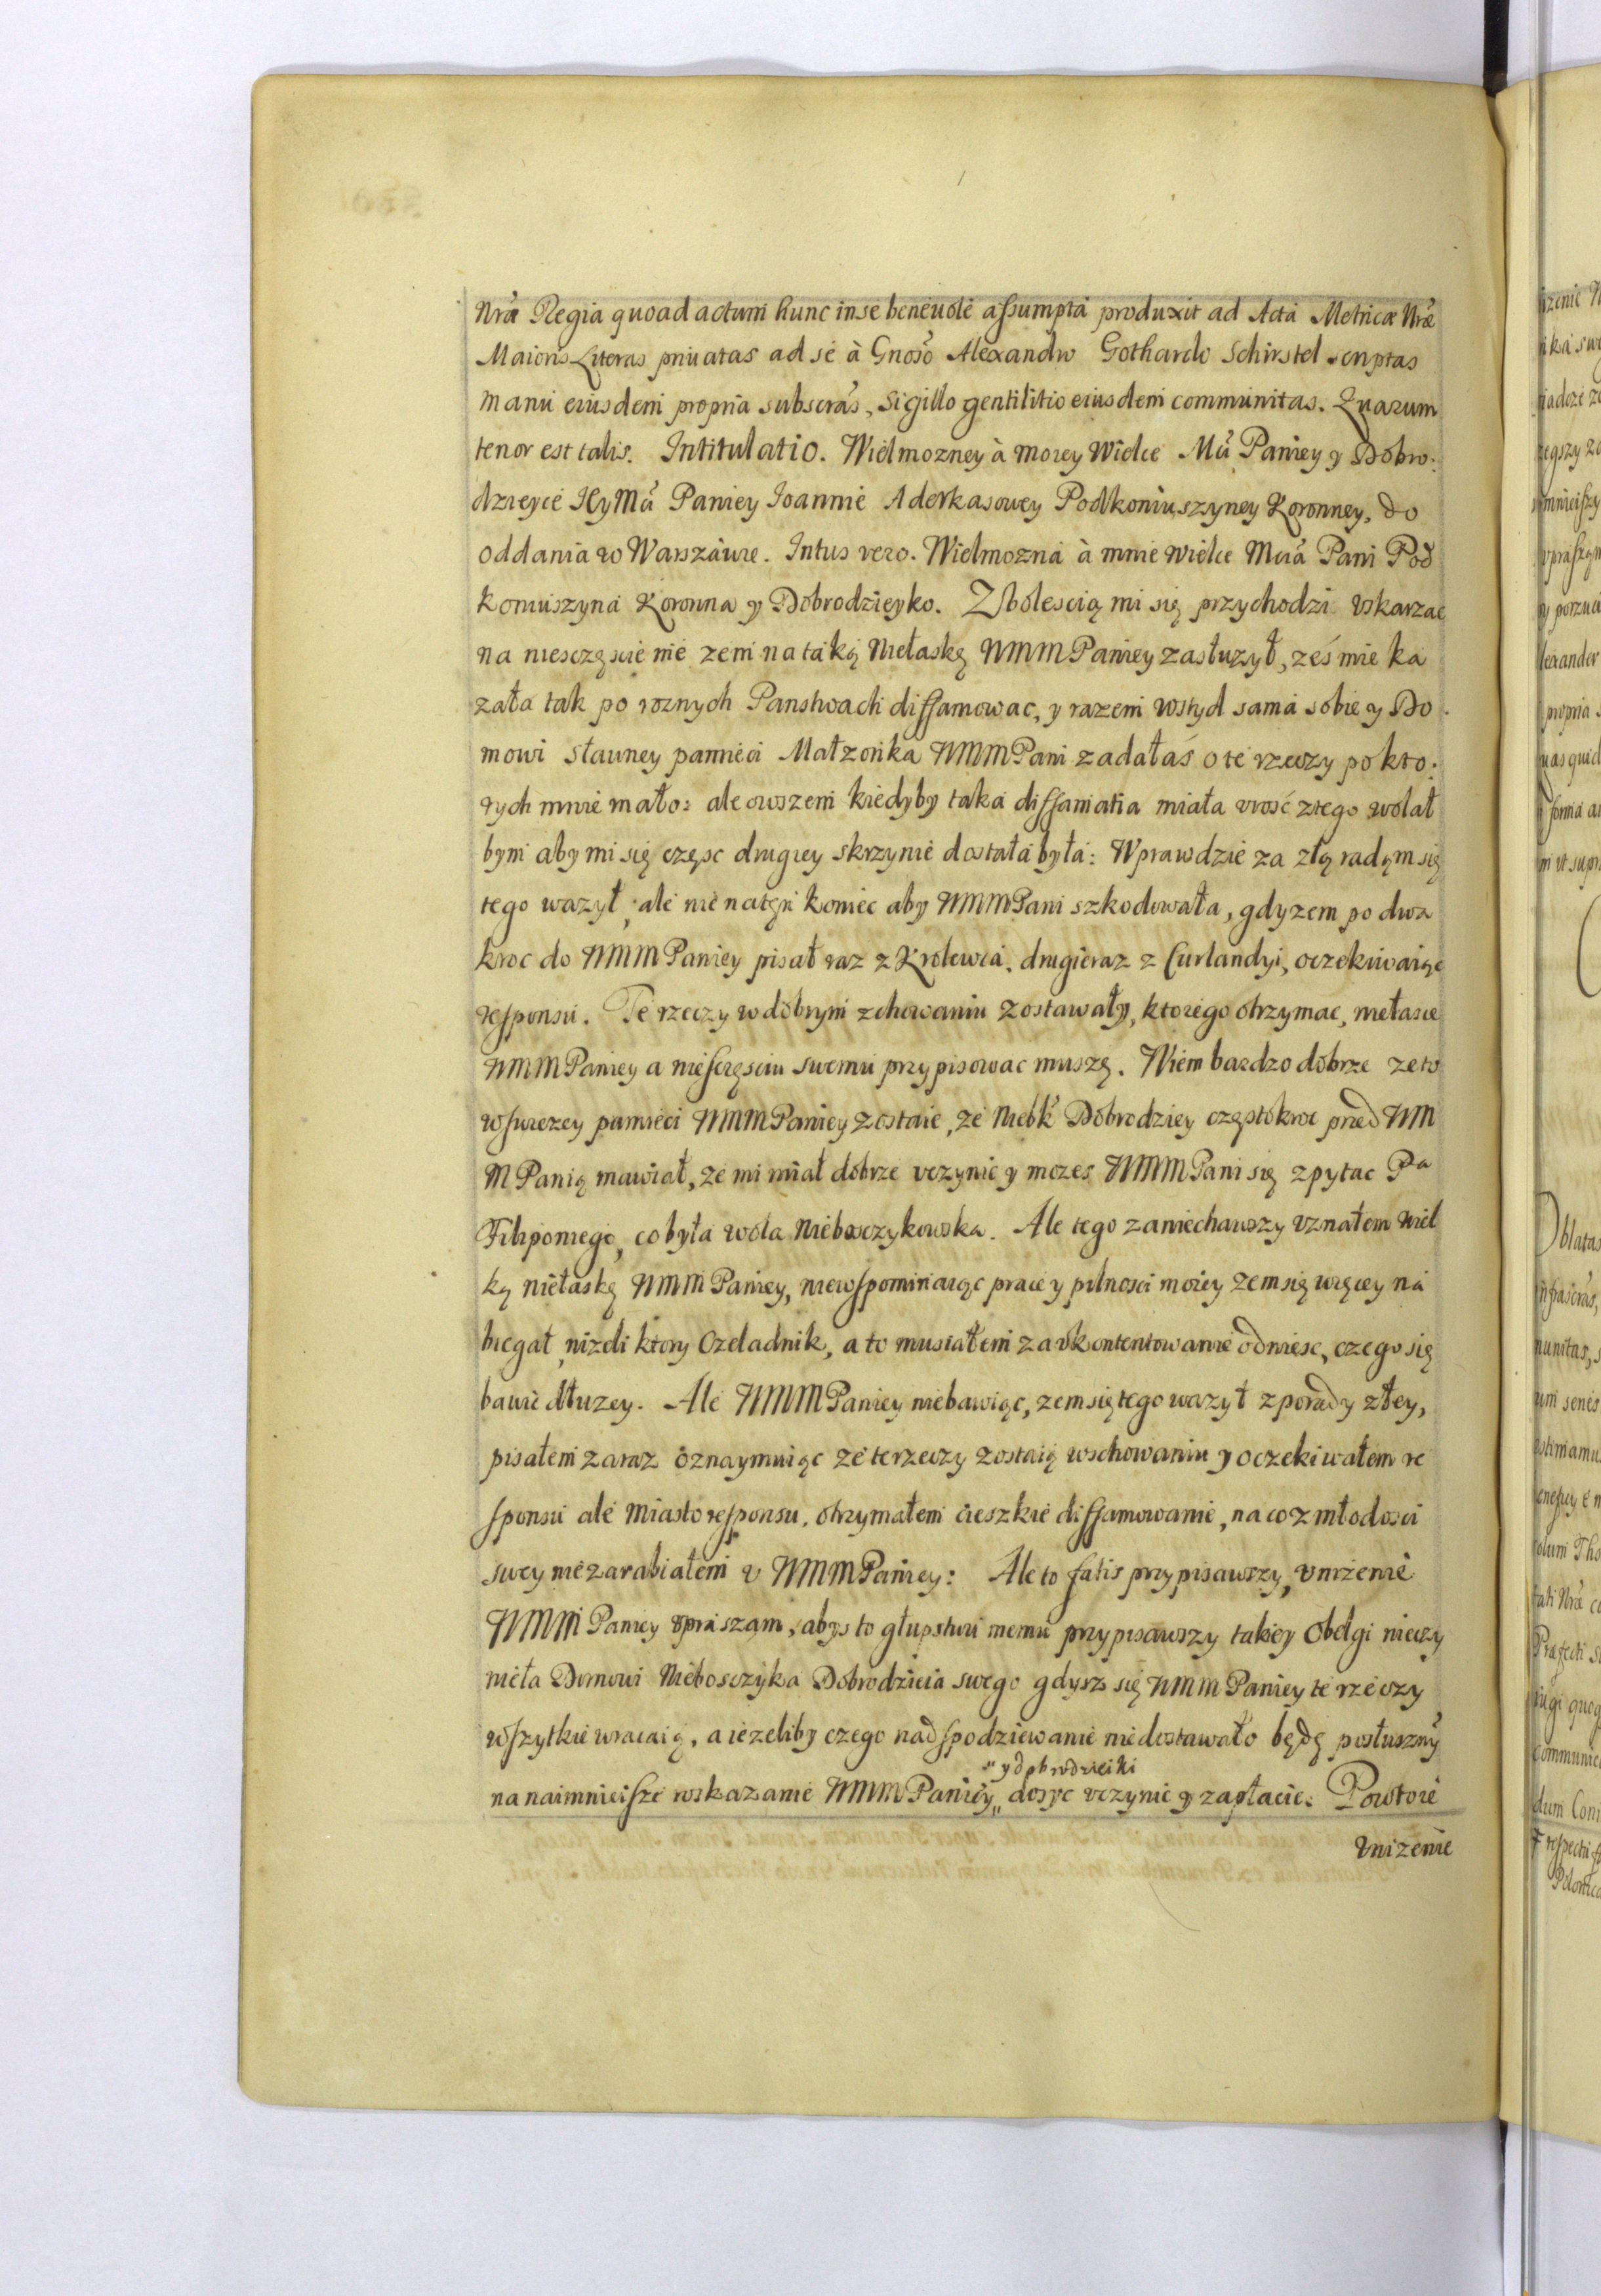 Nrã Regia quoad actum hunc in se beneuole assumpta produxit ad Acta Metricæ Nræ
Maioris Literas priuatas ad se à Gnoso Alexandro Gothardo Schirstel scriptas
manu eiusdem propria subscras, Sigillo gentilitio eiusdem communitas. Quarum
tenor est talis. Intitulatio. Wielmozney à mozey Wielce Mũ Paniey y Dobro:
dzieyce JeyMã Paniey Joannie Aderkasowey Podkoniuszyney Koronney, do
oddania w Warszawie. Intus vero. Wielmozna à mnie wielce Mcia Pani Pod
koniuszyna Koronna y Dobrodzieyko. Z bolescią mi się przychodzi vskarzac
na niesczęscie nie zem na taką Niełaskę WMM Paniey zasłuzył, ześ mie ka
zała tak po roznych Panstwach diffamowac, y razem wstyd sama sobie y Do
mowi sławney pamieci Małzonka WMM Pani zadałaś o te rzeczy po kto:
rych mnie mało: ale owszem kiedyby taka diffamatia miała vrość z tego wolał
bym aby mi się częsc drugiey skrzynie dostała była: Wprawdzie za złą radąm się
tego wazył, ale nie na ten koniec aby WMM Pani szkodowała, gdyzem po dwa
kroc do WMM Paniey pisał raz z Krolewca, drugi raz z Curlandyi, oczekiwaiąc
responsu. Te rzeczy w dobrym zchowaniu zostawały, ktorego otrzymac, niełasce
WMM Paniey a niesczęsciu swemu przypisowac muszę. Wiem bardzo dobrze ze to
w swiezey pamieci WMM Paniey zostaie, ze Niebk Dobrodziey częstokroc przed WM
M Panią mawiał, ze mi miał dobrze vczynic y mozes WMM Pani się zpytac Pa
Filiponiego, co była wola Nieboszczykowska. Ale tego zaniechawszy vznałem wiel
ką niełaskę WMM Paniey, niewspominaiąc prace y pilnosci moiey zem się więcey na
biegał, nizdi ktory Czeladnik, a to musiałem za vkontentowanie odniesc, czego się
bawic dłuzey. Ale WMM Paniey niebawiąc, zem się tego wazył z porady złey,
pisałem zaraz oznaymuiąc ze te rzeczy zostaią w schowaniu y oczekiwałem re
sponsu ale miasto responsu, otrzymałem cieszkie diffamowanie, na co z młodosci
swey nie zarabiałem v WMM Paniey: Ale to fatis przypisawszy, vnizenie
WMM Paniey vpraszam, abys to głupstwu memu przypisawszy takiey Obelgi nieczy
nieła Domowi Nieboszczyka Dobrodzieia swego gdysz się WMM Paniey te rzeczy
wszytkie wracaią, a iezeliby czego nad spodziewanie niedostawało będę posłuszny
" y dobrodzieiki
na naimnieisze roskazanie WMM Paniey " dosyc vczynic y zapłacic. Powtore
vnizenie